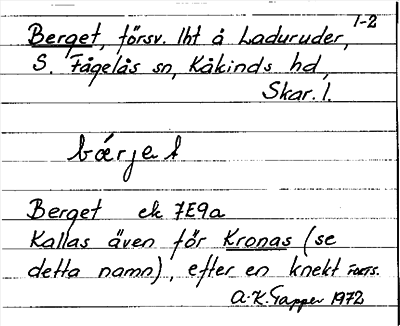 1-2
Berget, försv. lht å Laduruder,
S. Fågelås sn, Kåkinds hd,
Skar. l.
bærjet
Berget ek 7E9a
Kallas även för Kronas (se
detta namn), efter en knekt
A.-K. Tapper 1972